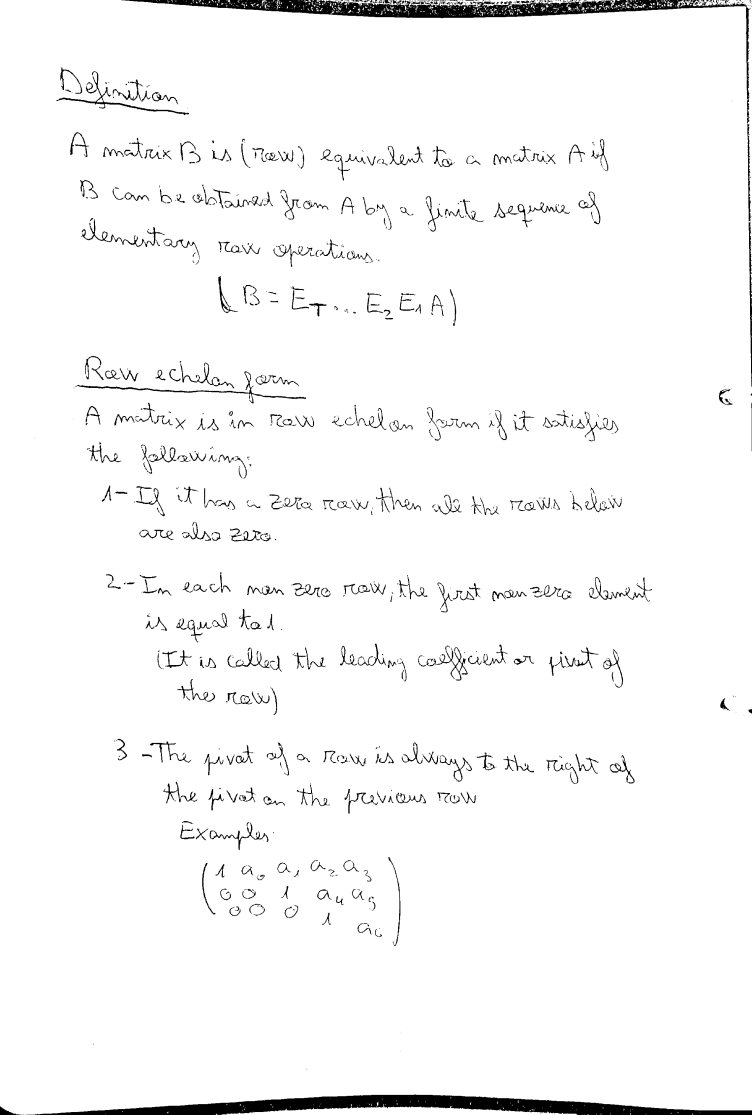 Definition
A matrix B is (row) equivalent to a matrix A if
B can be obtained from A by a finite sequence of
elementary row operations.
( B = E_T ... E_2 E_1 A )
Row echelon form
A matrix is in row echelon form if it satisfies
the following:
1- If it has a zero row, then all the rows below
are also zero.
2- In each non zero row, the first non zero element
is equal to 1.
(It is called the leading coefficient or pivot of
the row)
3 - The pivot of a row is always to the right of
the pivot on the previous row
Examples:
1 a_0 a_1 a_2 a_3
0 0 1 a_4 a_5
0 0 0 1 a_6